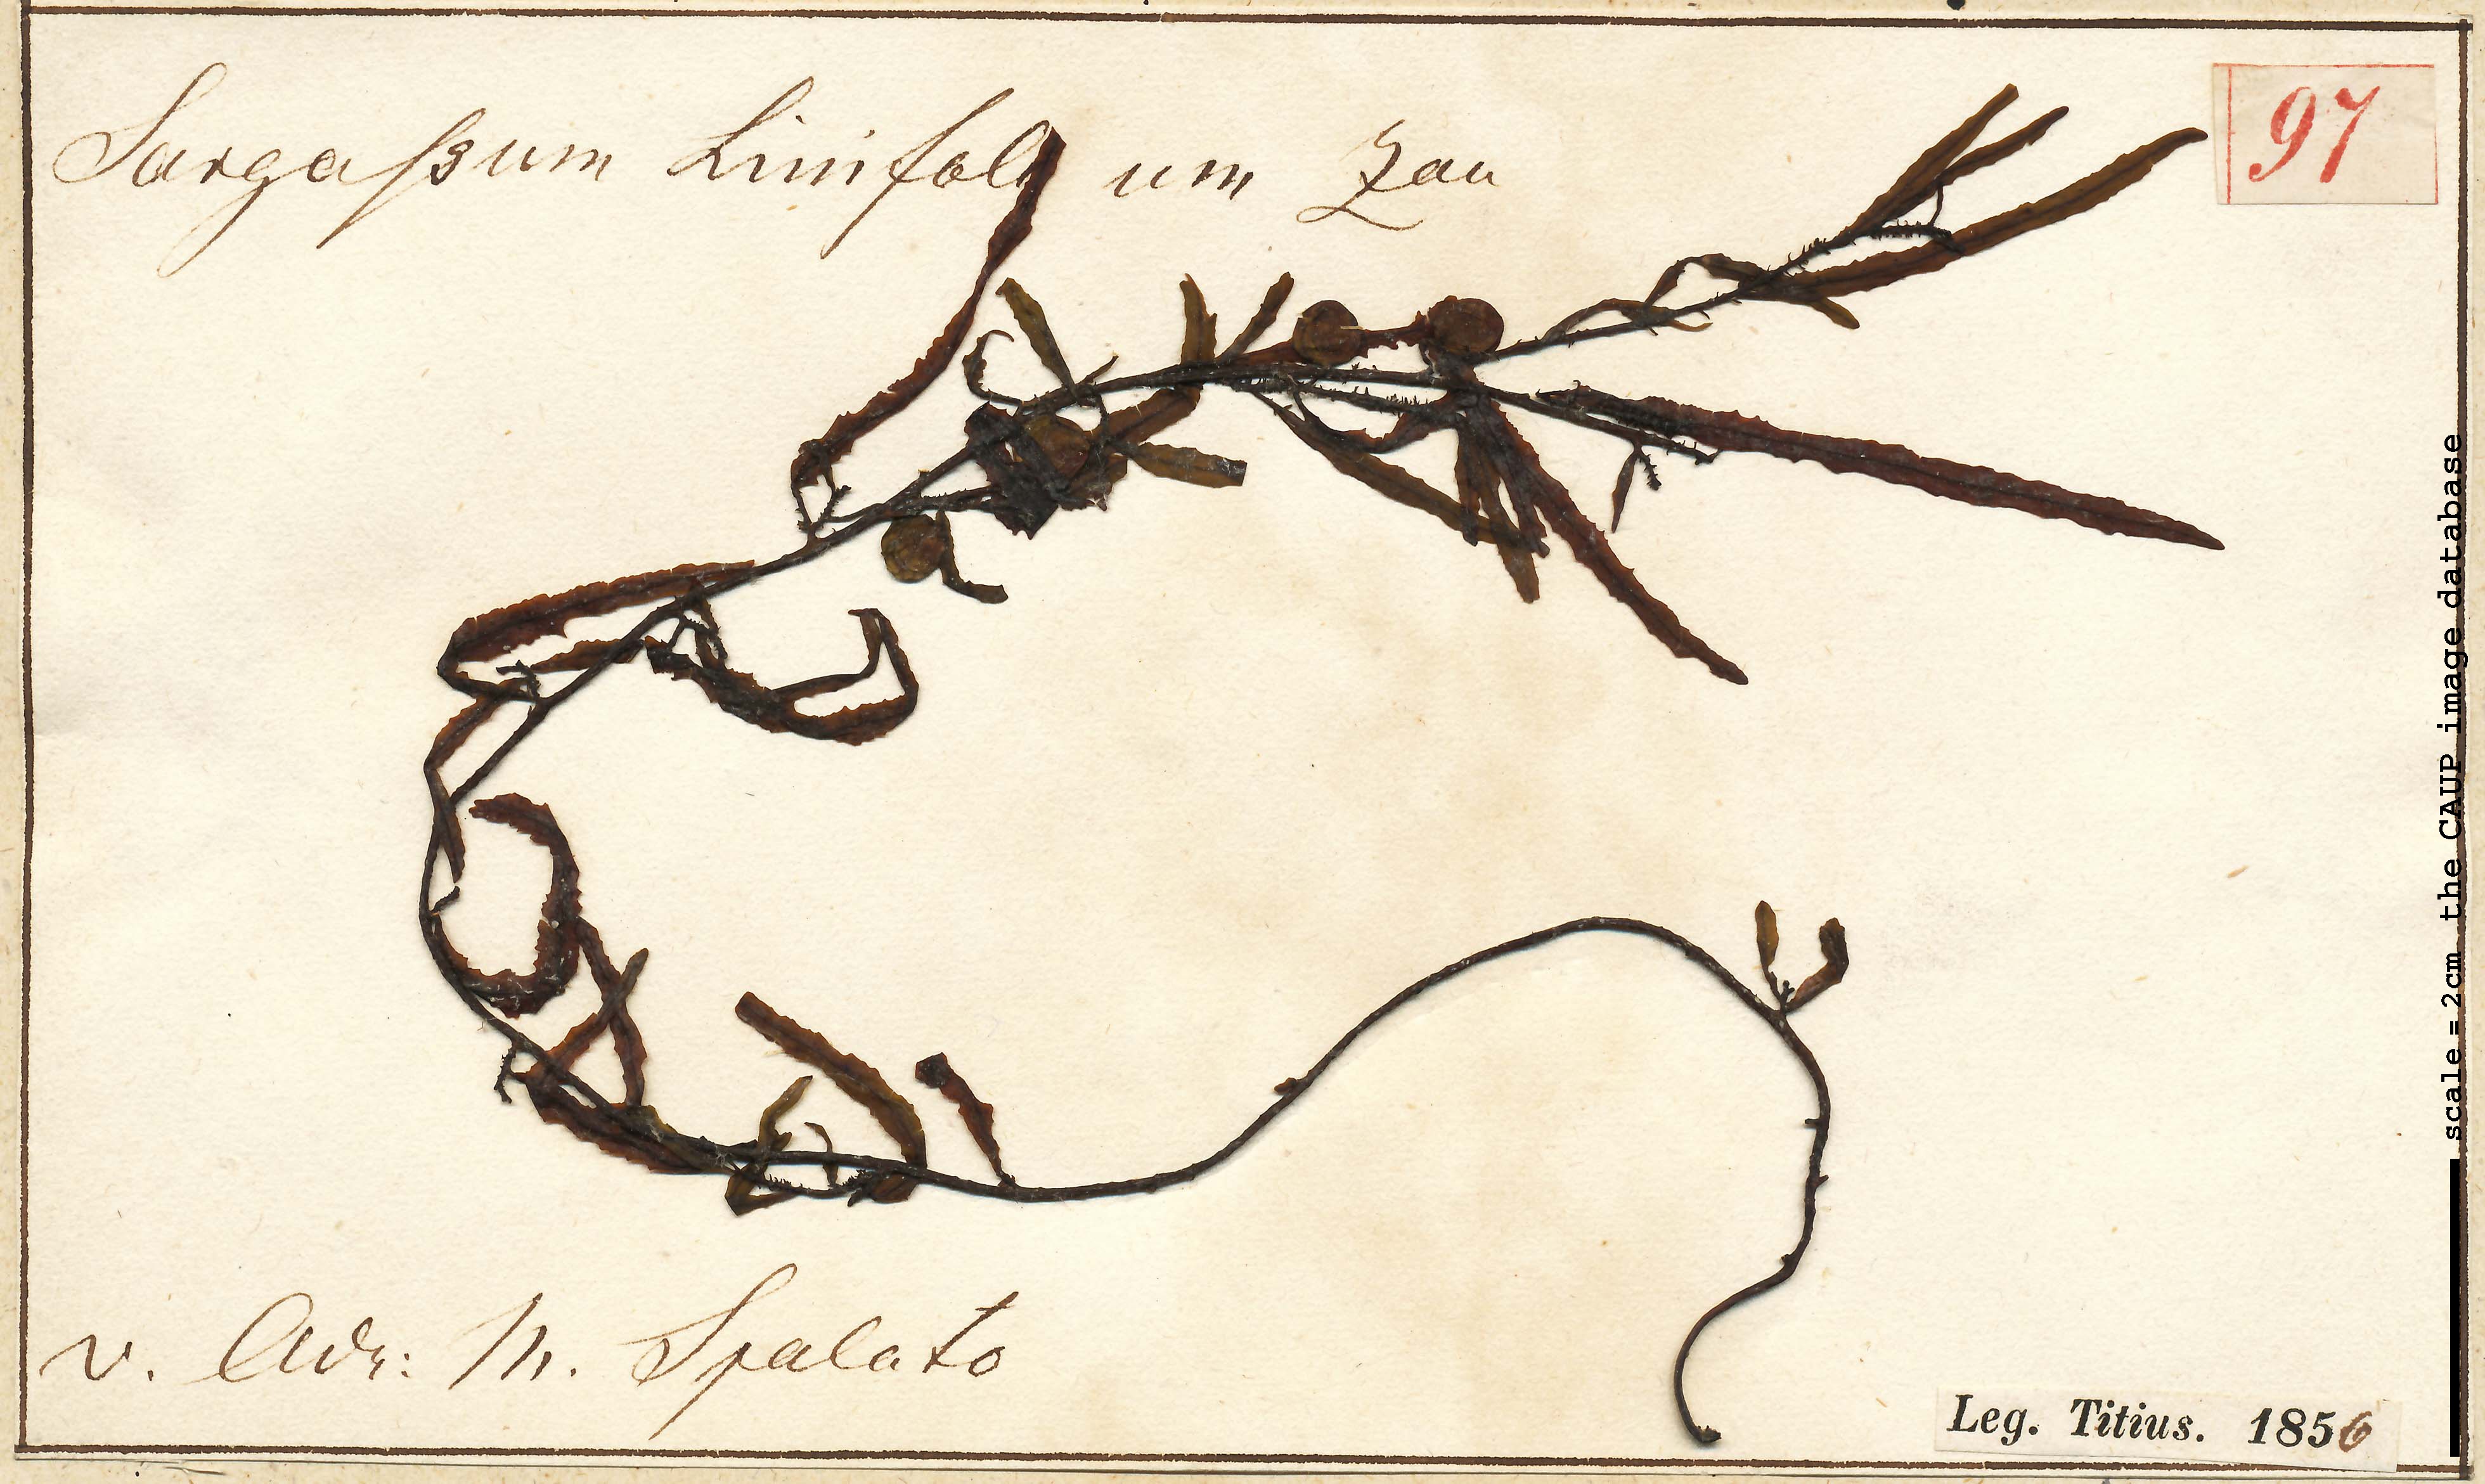 Sargaſsum Linifolium Zan
97
v. Adr: M. Spalato
Leg. Titius. 1856
scale = 2cm the CAUP image database